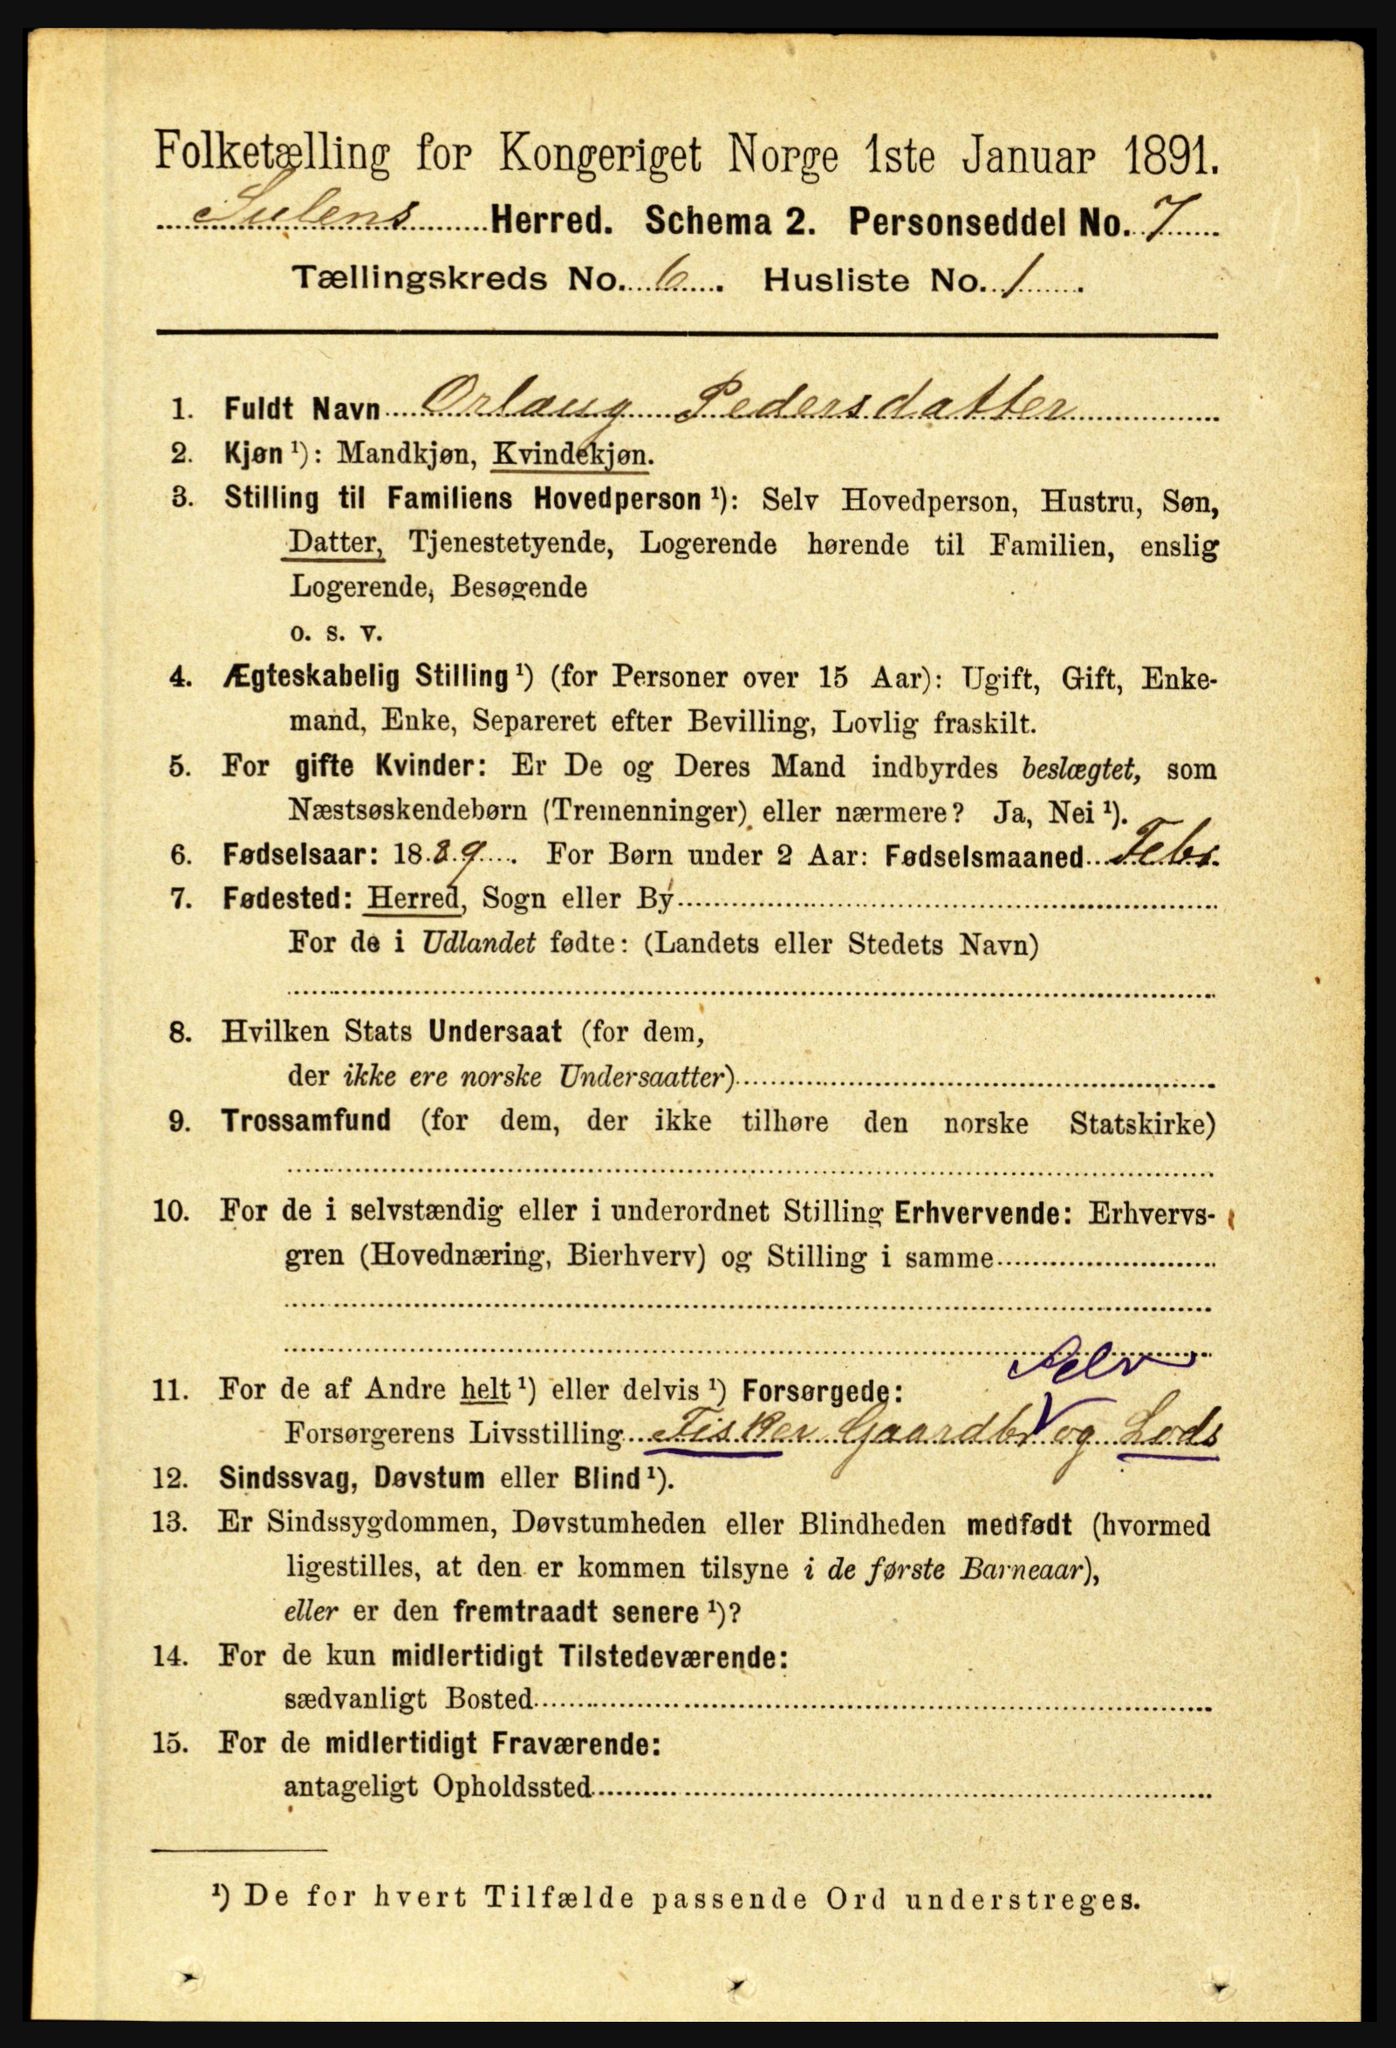 Folketælling for Kongeriget Norge 1ste Januar 1891.
Sulens Herred. Schema 2. Personseddel No. 7
Tællingskreds No. 6. Husliste No. 1.
1. Fuldt Navn Orlaug Pedersdatter
2. Kjøn ¹): Mandkjøn, Kvindekjøn.
3. Stilling til Familiens Hovedperson ¹): Selv Hovedperson, Hustru, Søn,
Datter, Tjenestetyende, Logerende hørende til Familien, enslig
Logerende, Besøgende
o. s. v.
4. Ægteskabelig Stilling ¹) (for Personer over 15 Aar): Ugift, Gift, Enke-
mand, Enke, Separeret efter Bevilling, Lovlig fraskilt.
5. For gifte Kvinder: Er De og Deres Mand indbyrdes beslægtet, som
Næstsøskendebørn (Tremenninger) eller nærmere? Ja, Nei ¹).
6. Fødselsaar: 1889. For Børn under 2 Aar: Fødselsmaaned Febr.
7. Fødested: Herred, Sogn eller By
For de i Udlandet fødte: (Landets eller Stedets Navn)
8. Hvilken Stats Undersaat (for dem,
der ikke ere norske Undersaatter)
9. Trossamfund (for dem, der ikke tilhøre den norske Statskirke)
10. For de i selvstændig eller i underordnet Stilling Erhvervende: Erhvervs-
gren (Hovednæring, Bierhverv) og Stilling i samme
Selv
11. For de af Andre helt ¹) eller delvis ¹) Forsørgede:
Forsørgerens Livsstilling Fisker Gaardbr og Lods
12. Sindssvag, Døvstum eller Blind ¹).
13. Er Sindssygdommen, Døvstumheden eller Blindheden medfødt (hvormed
ligestilles, at den er kommen tilsyne i de første Barneaar),
eller er den fremtraadt senere ¹)?
14. For de kun midlertidigt Tilstedeværende:
sædvanligt Bosted
15. For de midlertidigt Fraværende:
antageligt Opholdssted
¹) De for hvert Tilfælde passende Ord understreges.